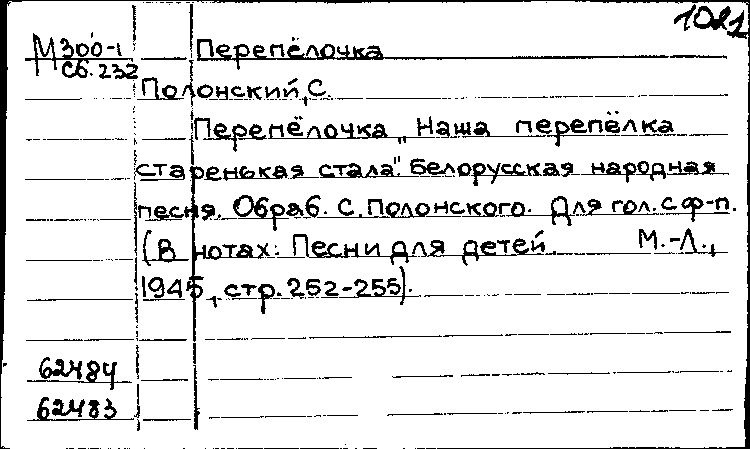 1021
М300-1 Перепёлочка
Сб. 232
Полонский, С.
Перепёлочка „Наша перепёлка
старенькая стала". Белорусская народная
песня. Обраб. С. Полонского. Для гол. с ф-п.
(В нотах: Песни для детей. М.-Л.,
1945, стр. 252-255).
62484
62483